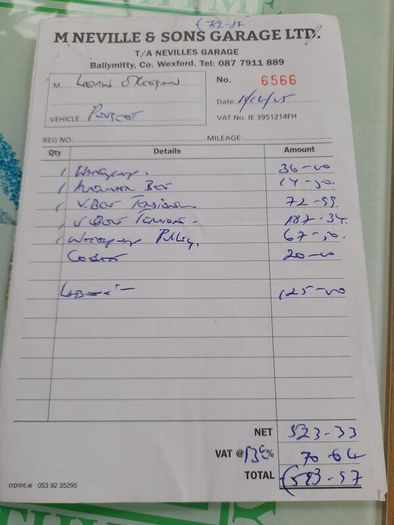 (712-17
M NEVILLE & SONS GARAGE LTD.
T/A NEVILLES GARAGE
Ballymitty, Co. Wexford. Tel: 087 7911 889
M
No. 6566
Date:
VEHICLE Peugeot
VAT No. IE 3951214FH
REG NO: MILEAGE:
Qty Details Amount
1 Waterpump. 36-00
1 Belt 14-50
1 V.Belt Tensioner 72-99
1 V.Belt Tensioner - 187-34
1 Waterpump Pulley. 67-50.
Coolant 20-00
Labour - 125-00
NET 523-33
VAT @ 13½% 70-64
TOTAL €593-97
crprint.ie 053 92 35295